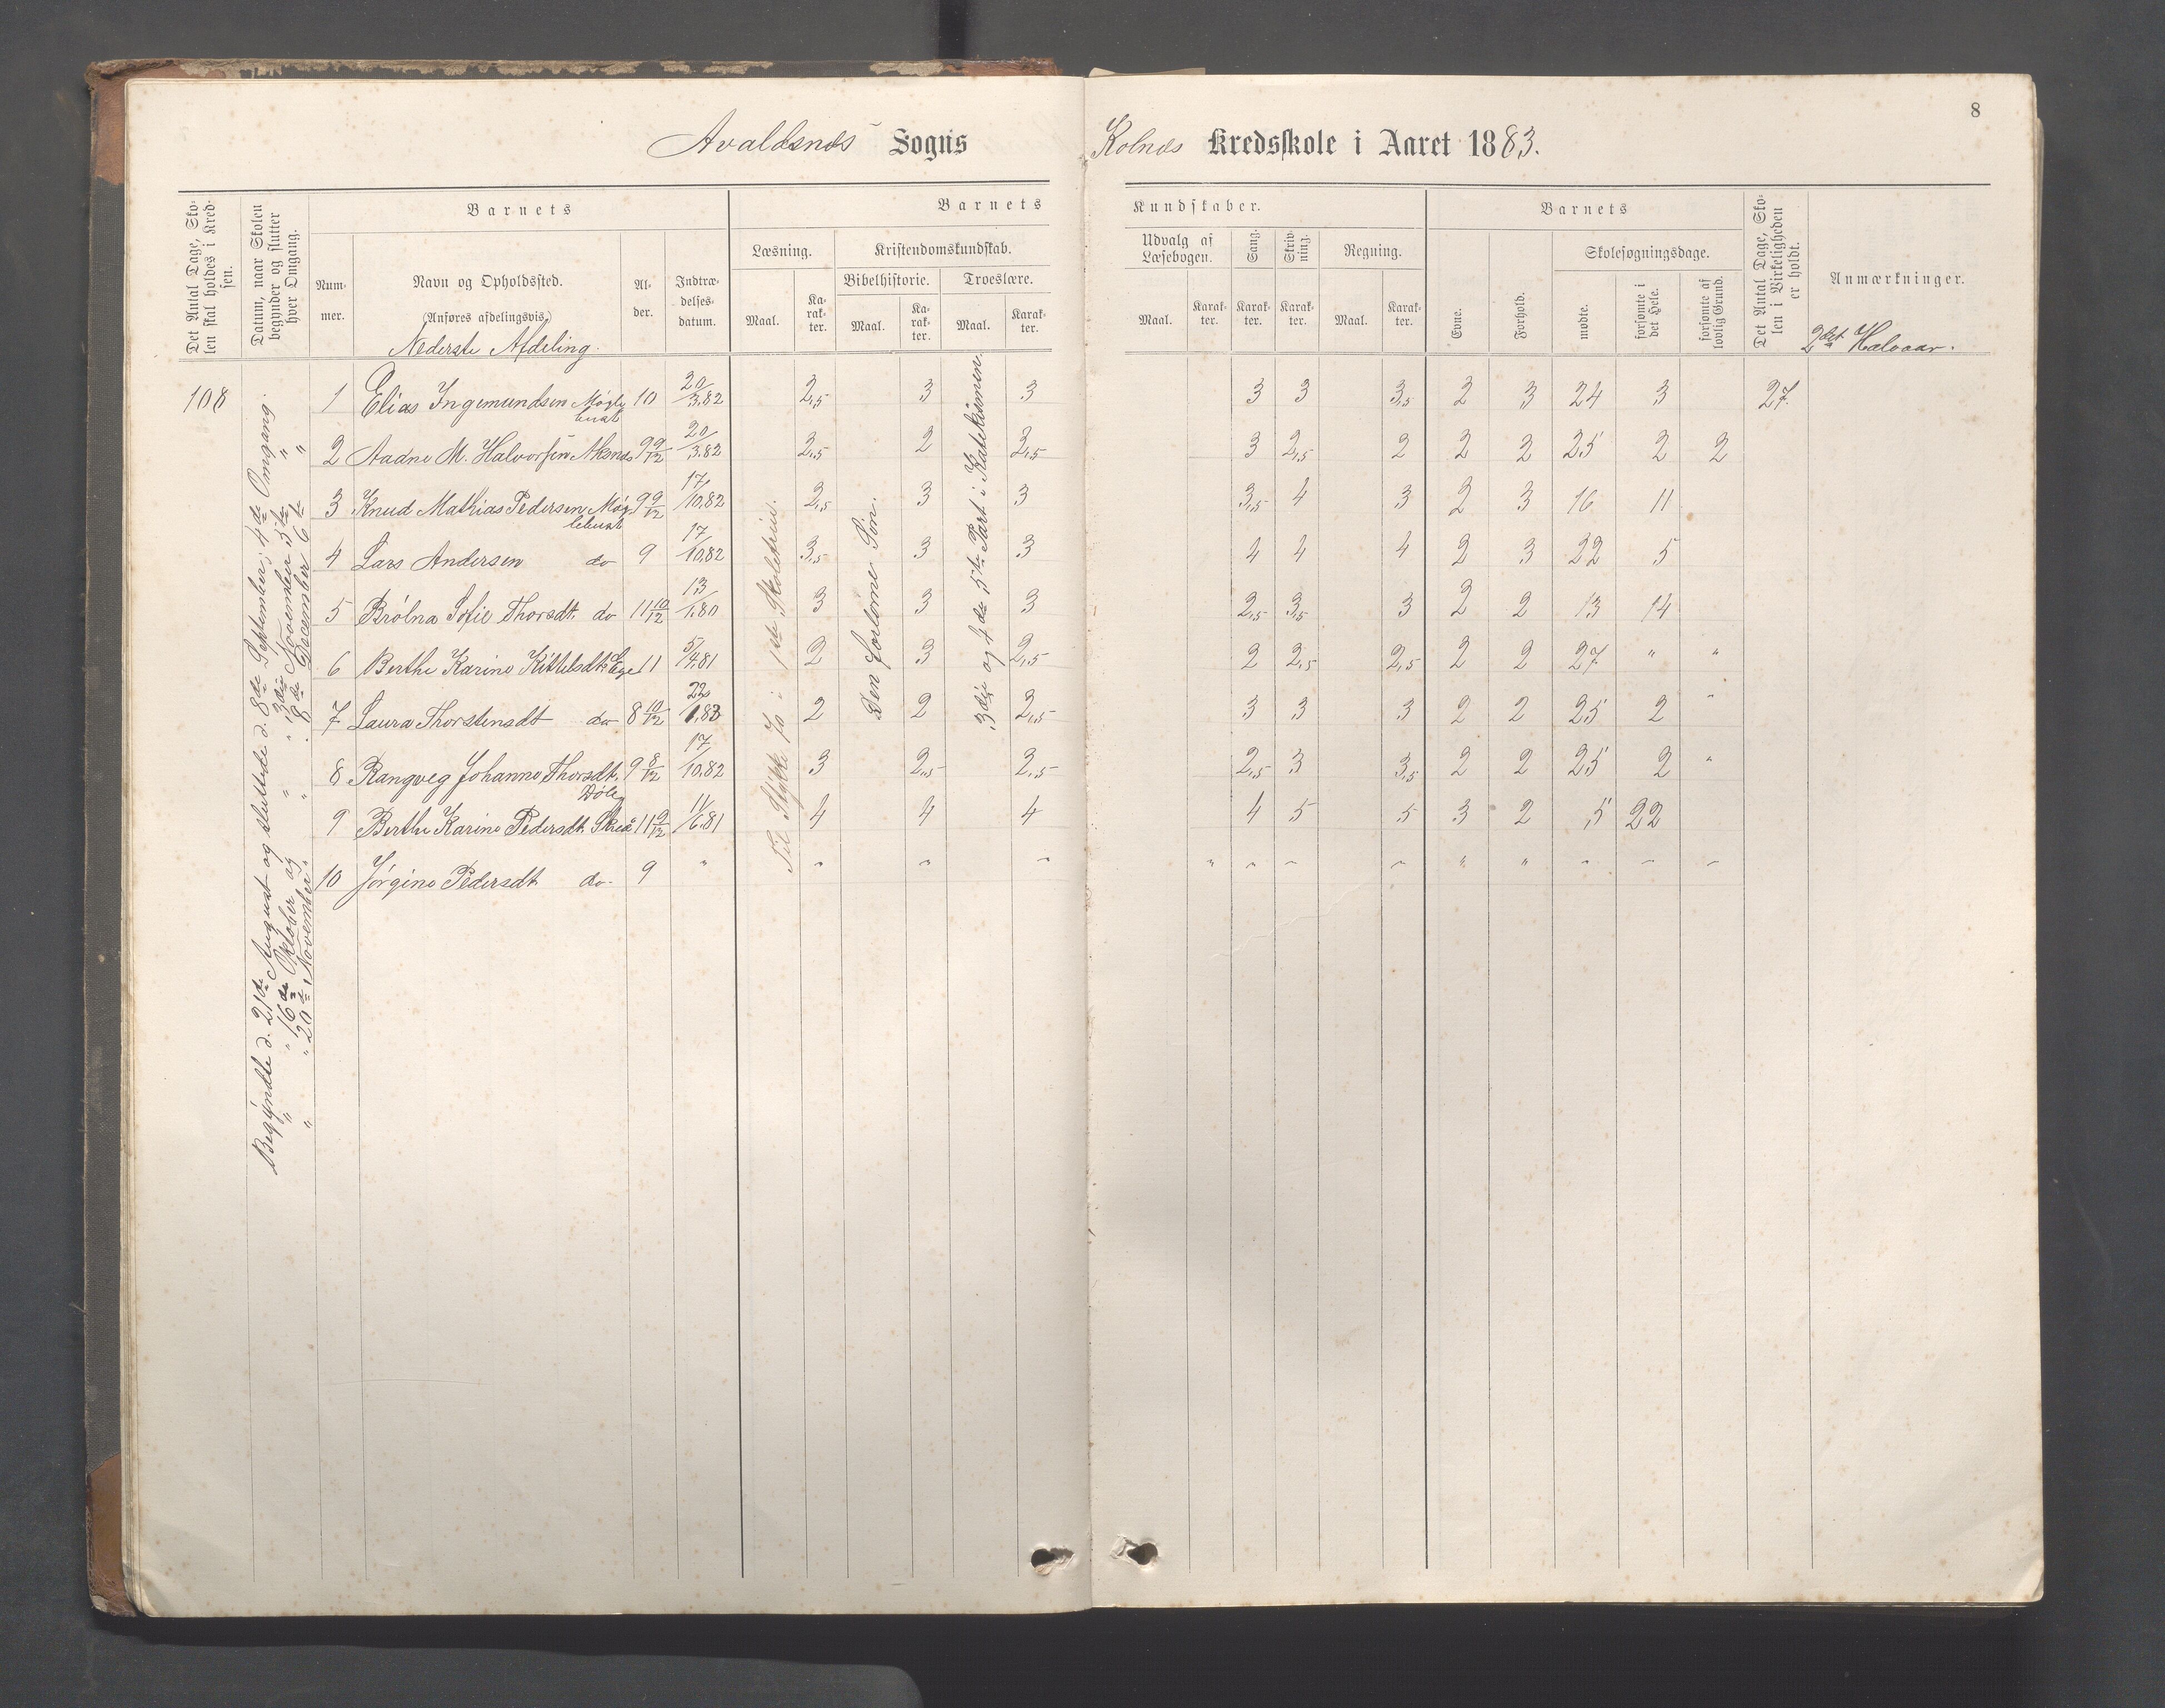 8
Avaldsnes Sogns Kolnes Kredsskole i Aaret 1883.
Det Antal Dage, Sko-
len skal holdes i Kred-
sen.
Datum, naar Skolen
begynder og slutter
hver Omgang.
Barnets
Num-
mer.
Navn og Opholdssted.
(Anføres afdelingsvis.)
Nederste Afdeling.
Al-
der.
Indtræ-
delses-
datum.
Barnets Kundskaber.
Læsning.
Maal.
Ka-
rak-
ter.
Kristendomskundskab.
Bibelhistorie.
Maal.
Ka-
rak-
ter.
Troeslære.
Maal.
Karak-
ter.
Udvalg af
Læsebogen.
Maal.
Karak-
ter.
Sang.
Karak-
ter.
Skriv-
ning.
Karak-
ter.
Regning.
Maal.
Karak-
ter.
Barnets
Evne.
Forhold.
Skolesøgningsdage.
mødte.
forsømte i
det Hele.
forsømte af
lovlig Grund.
Det Antal Dage, Sko-
len i Virkeligheden
er holdt.
Anmærkninger.
2det Halvaar.
108
Begyndte d. 21de August og sluttede d. 8de September; 4de Omgang.
" " 16de Oktober og " " 3die November 5te "
" " 20de November " " " 8de December 6te "
Til Stykke 70 i 1ste Skoletrin.
Den forlorne Søn.
3die og 4de 5te Part i Katekismen.
1 Elias Ingemundsen Møgle- 10 20/3.82 2,5 3 3 3 3 3,5 2 3 24 3 27.
bust
2 Aadne M. Halvorsen Aksnes 9 9/12 20/3.82 2,5 2 2,5 3 2,5 2 2 2 25 2 2
3 Knud Mathias Pedersen Møg- 9 9/12 17/10.82 2,5 3 3 3,5 4 3 2 3 16 11
lebust
4 Lars Andersen do 9 17/10.82 3,5 3 3 4 4 4 2 3 22 5
5 Brølna Sofie Thorsdt. do 11 10/12 13/1.80 3 3 3 2,5 3,5 3 2 2 13 14
6 Berthe Karine Kittelsdt. Ege 11 5/4.81 2 3 2,5 2 2,5 2,5 2 2 27 " "
7 Laura Thorstensdt do 8 10/12 2 2 2,5 3 3 3 2 2 25 2 "
8 Rangveg Johanne Thorsdt. 9 8/12 17/10.82 3 2,5 2,5 2,5 3 3,5 2 2 25 2 "
9 Berthe Karine Pedersdt. 11 9/12 11/6.81 4 4 4 4 5 5 3 2 5 22
10 Jørgine Pedersdt do. 9 " " " " " " " " " " " " "